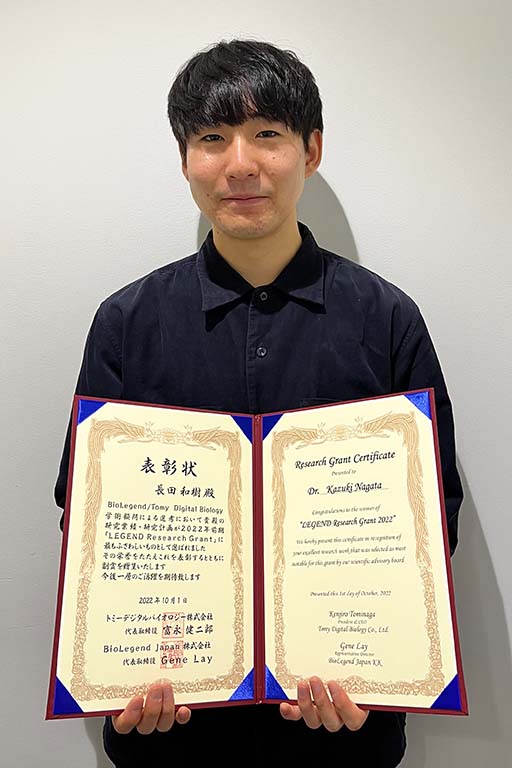 表彰状
長田 和樹 殿
BioLegend/Tomy Digital Biology
学術顧問による選考において貴殿の
研究業績・研究計画が2022年前期
「LEGEND Research Grant」に
最もふさわしいものとして選ばれました
その栄誉をたたえこれを表彰するとともに
副賞を贈呈いたします
今後一層のご活躍を期待致します
2022年10月1日
トミーデジタルバイオロジー株式会社
代表取締役 富永 健二郎
BioLegend Japan株式会社
代表取締役 Gene Lay
Research Grant Certificate
Presented to
Dr. Kazuki Nagata
Congratulations to the winner of
"LEGEND Research Grant 2022"
We hereby present this certificate in recognition of
your excellent research work that was selected as most
suitable for this grant by our scientific advisory board.
Presented this 1st day of October, 2022
Kenjiro Tominaga
President & CEO
Tomy Digital Biology Co., Ltd.
Gene Lay
Representative Director
BioLegend Japan KK